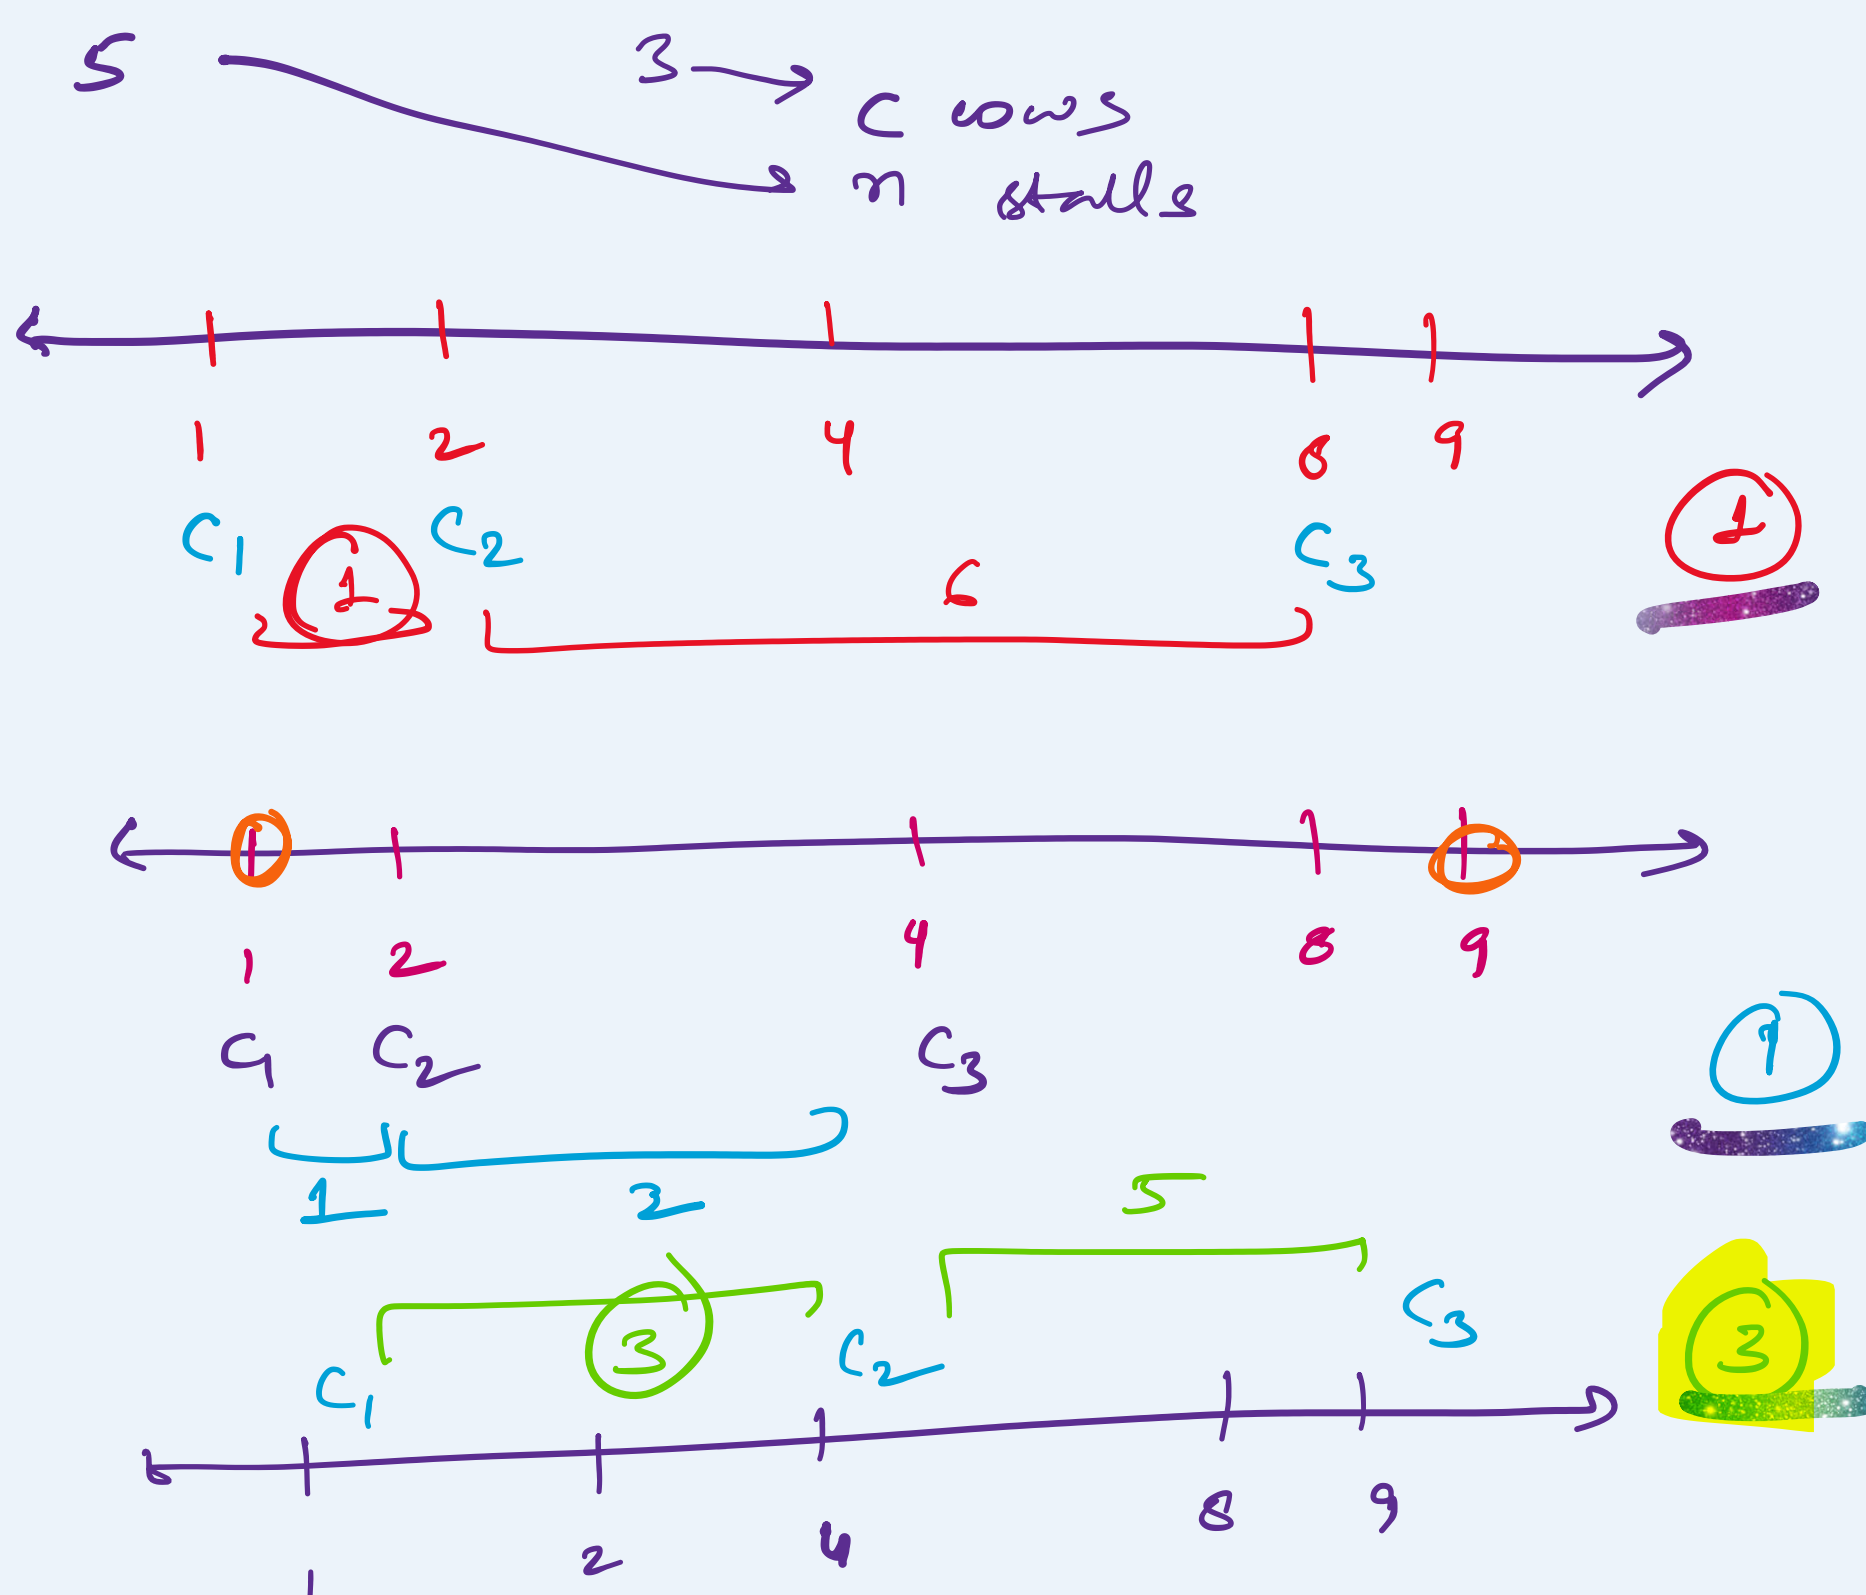 5 3
C cows
n stalls
1 2 4 8 9
C1 C2 C3
1 6 1
1 2 4 8 9
C1 C2 C3 1
1 2
5
C1 3 C2 C3 3
1 2 4 8 9